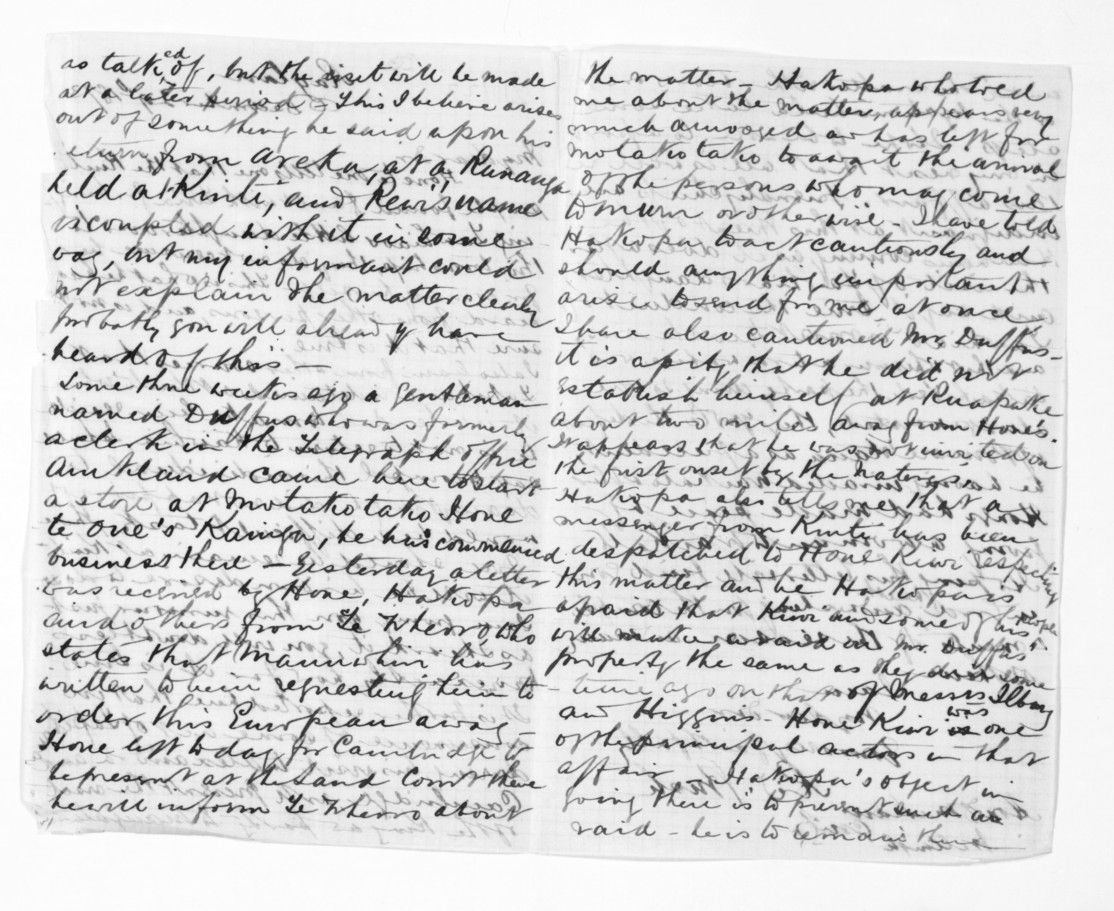 as talked of, but the visit will be made
at a later period - This I believe arises
out of something he said upon his
return from Areka, at a Runanga
held at Kuiti, and Rewi's name
is coupled with it in some
way, but my informant could
not explain the matter clearly
probably you will already have
heard of this -
Some three weeks ago a gentleman
named Duffus who was formerly
a clerk in the Telegraph office
Auckland came here to start
a store at Motakotako Hone
te One's Kainga, he has commenced
business there - Yesterday a letter
was received by Hone, Hakopa
and others from Te Wheoro who
states that Manuwhiri has
written to him requesting him to
order this European away -
Hone left today for Cambridge to
be present at the Land Court there
he will inform Te Wheoro about
the matter - Hakopa who told
me about the matter, appears very
much annoyed and has left for
Motakotako to await the arrival
of the persons who may come
to murn or otherwise - I have told
Hakopa to act cautiously and
should anything important
arise to send for me at once
I have also cautioned Mr. Duffus -
it is a pity that he did not
establish himself at Ruapuke
about two miles away from Hone's.
It appears that he was not invited on
the first onset by the natives -
Hakopa also tells me that a
messenger from Kuiti has been
despatched to Hone Kiwi respecting
this matter and he Hakopa is
afraid that Kiwi and some of his people
will make a raid on Mr. Duffus'
property the same as they did some
time ago on that of Messrs
and Higgins - Hone Kiwi was one
of the principal actors in that
affair - Hakopa's object in
going there is to prevent such a
raid - he is to remain there